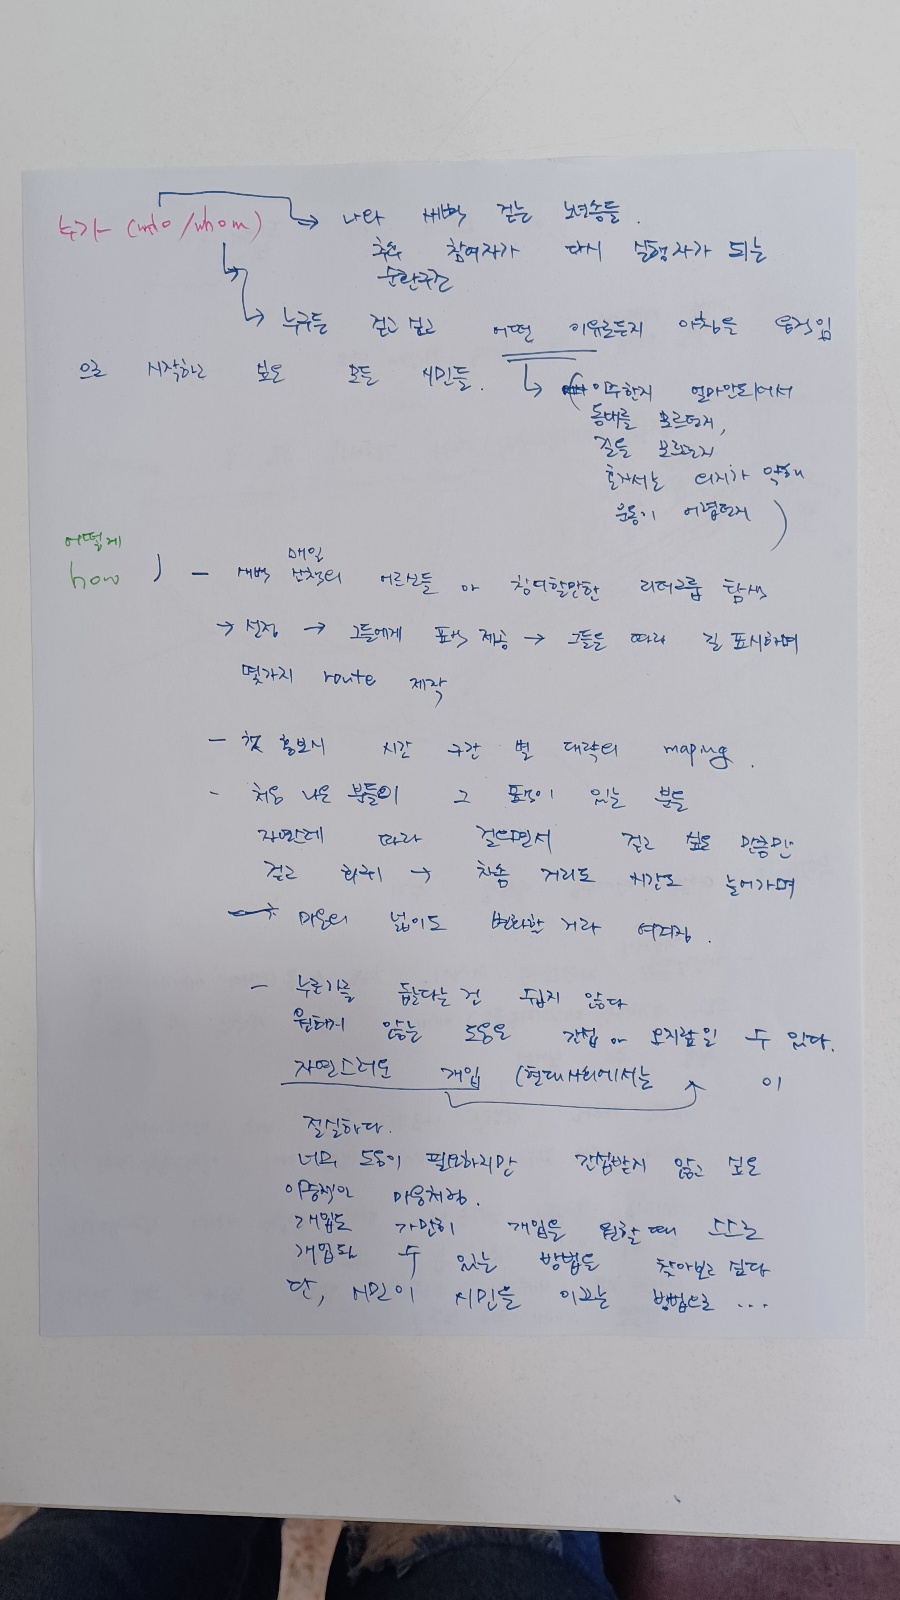 누가 (who/whom) → 나와 새벽 걷는 노년층들.
추후 참여자가 다시 실행자가 되는
순환구조
→ 누구든 걷고 싶고 어떤 이유로든지 아침을 움직임
으로 시작하고 싶은 모든 시민들.
→ (이주한지 얼마안되어서
동네를 모르던지,
길을 모르던지
혼자서는 의지가 약해
운동이 어렵던지)
어떻게
how) - 새벽 매일 산책의 어르신들 or 참여할만한 리더그룹 탐색
→ 선정 → 그들에게 표식 제공 → 그들을 따라 길 표시하며
몇가지 route 제작
- 첫 홍보시 시간 구간 별 대략의 maping.
- 처음 나온 분들이 그 표식이 있는 분들
자연스레 따라 걸으면서 걷고 싶은 만큼만
걷고 회귀 → 차츰 거리도 시간도 늘어가며
→ 마음의 넓이도 변화할 거라 여겨짐.
- 누군가를 돕는다는 건 쉽지 않다
원하지 않는 도움은 간섭 or 오지랖일 수 있다.
자연스러운 개입 (현대사회에서는 이
절실하다.
너의 도움이 필요하지만 간섭받지 않고 싶은
이중적인 마음처럼.
개입도 가만히 개입을 원할 때 스스로
개입될 수 있는 방법을 찾아보고 싶다
단, 시민이 시민을 이끄는 방법으로 ...